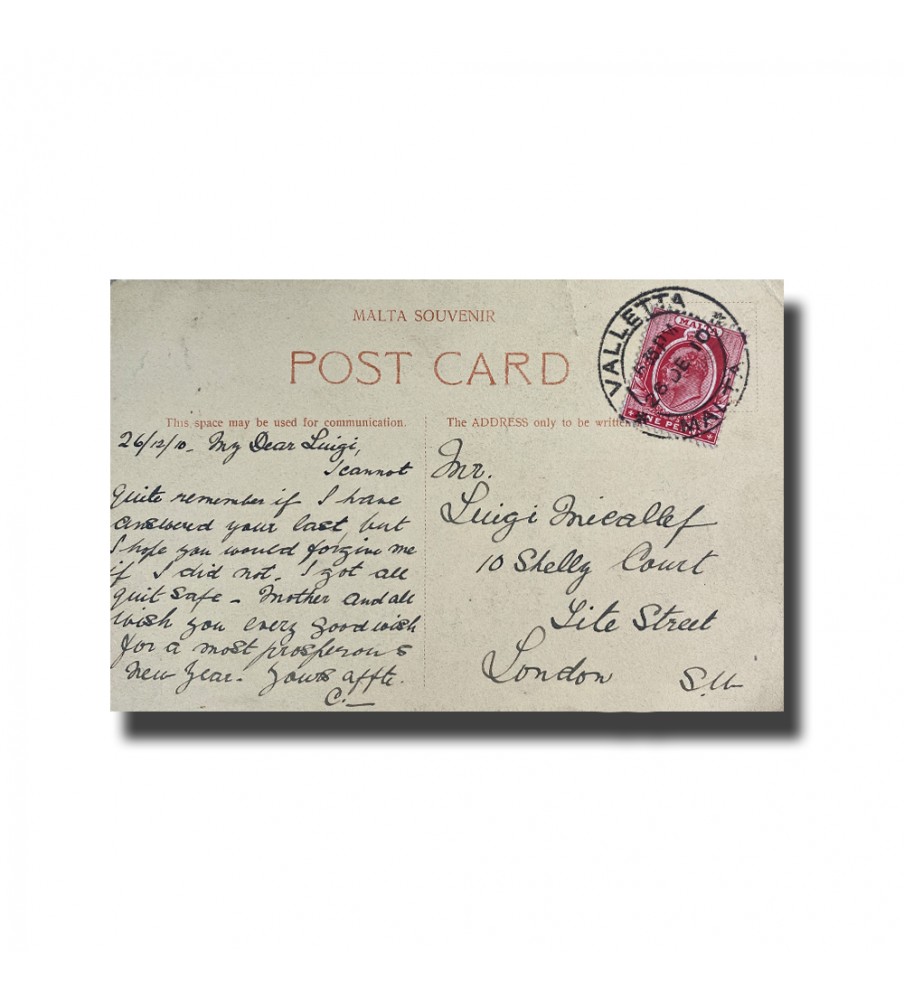 MALTA SOUVENIR
POST CARD
This space may be used for communication.
26/12/10. My Dear Luigi,
I cannot
quite remember if I have
answered your last, but
I hope you would forgive me
if I did not. I got all
quit safe - Mother and all
wish you every good wish
for a most prosperous
new year. Yours affte.
C.
The ADDRESS only to be written
Mr.
Luigi Micallef
10 Shelly Court
Tite Street
London S.W
VALLETTA
MALTA
26 DE 10
MALTA
ONE PENNY